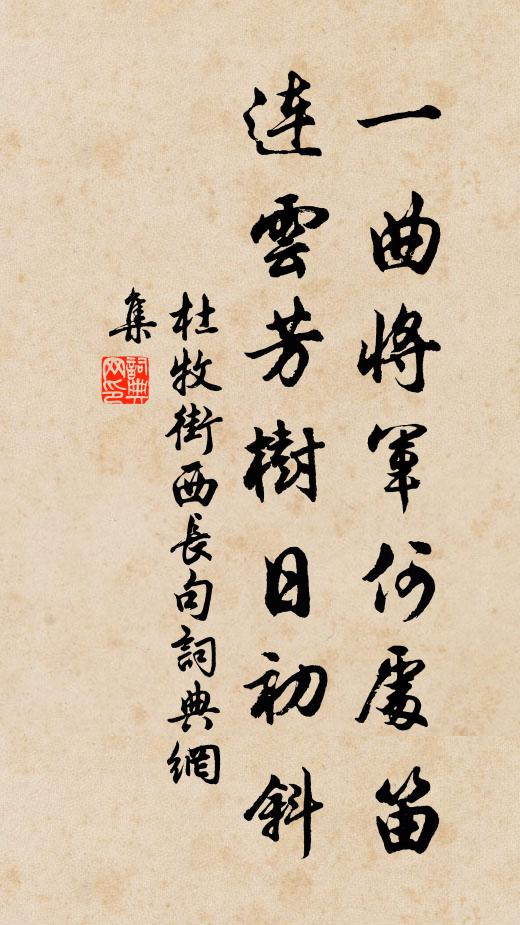 一曲將軍何處笛
連雲芳樹日初斜
杜牧街西長句詞典網
集
詞典
网印